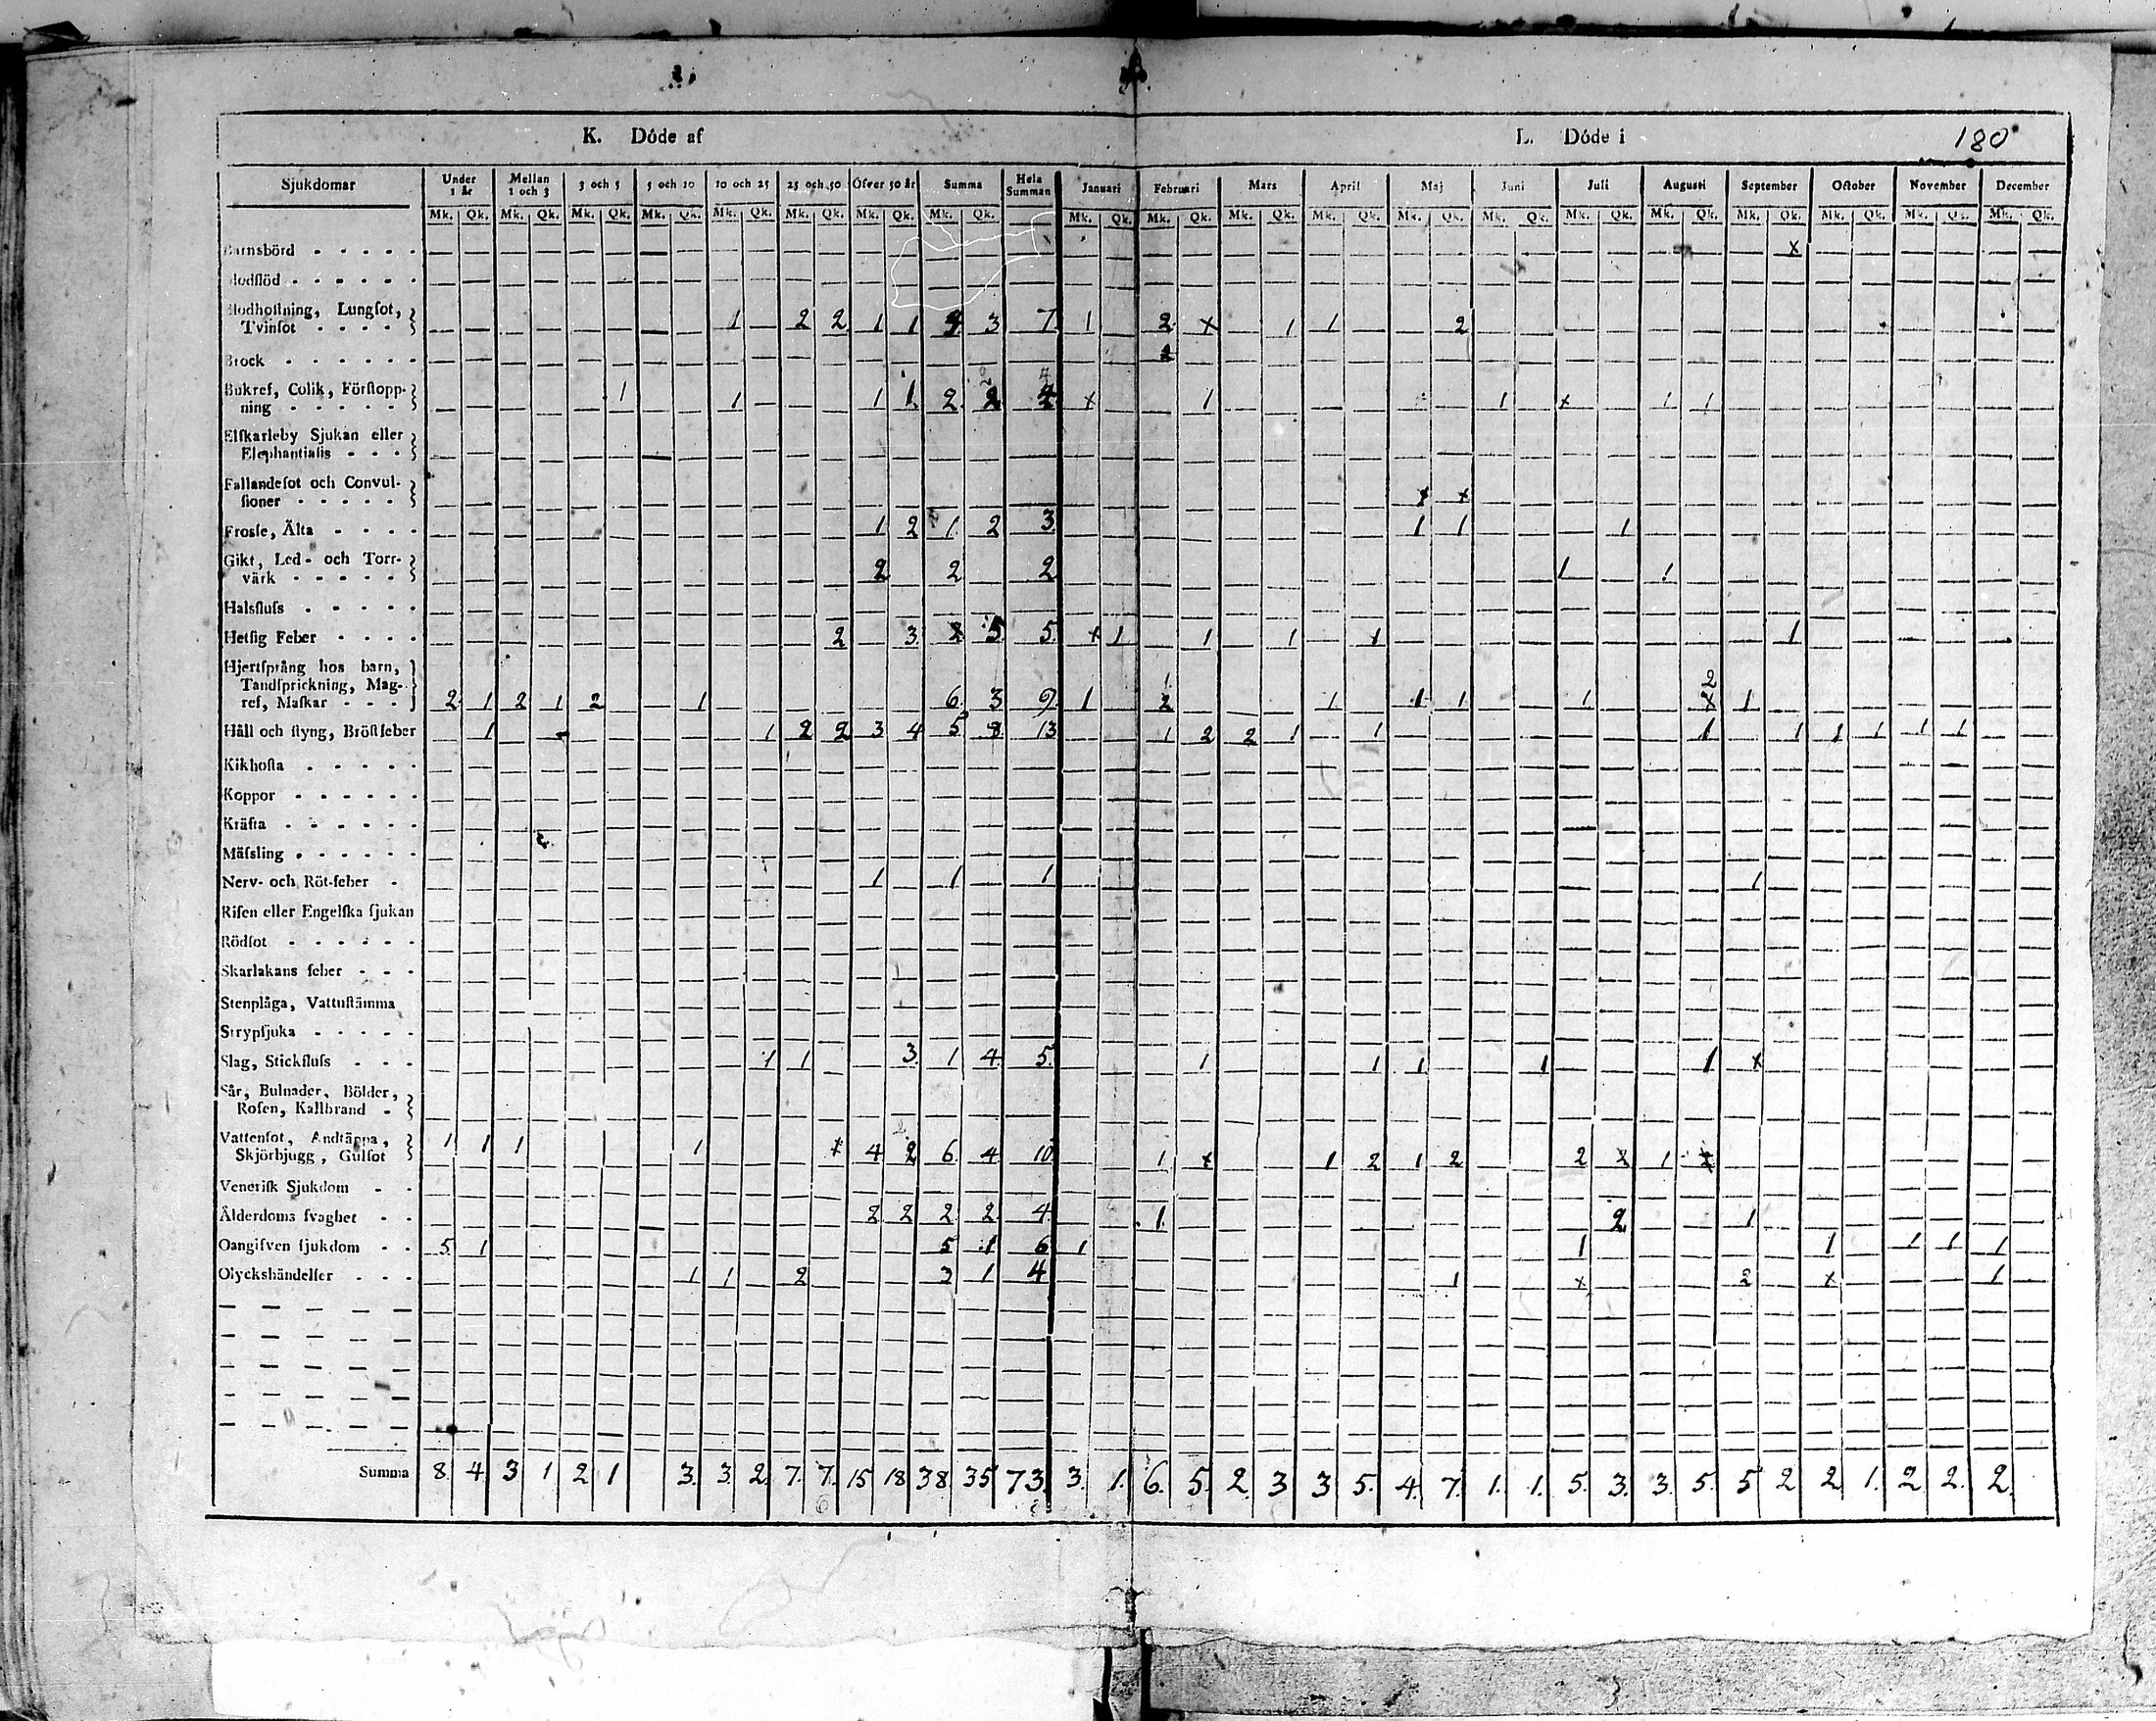 K. Döde af L. Döde i 180
Sjukdomar Under 1 år Mellan 1 och 3 3 och 5 5 och 10 10 och 25 25 och 50 Öfver 50 år Summa Hela Summan Januari Februari Mars April Maj Juni Juli Augusti September October November December
Mk. Qk. Mk. Qk. Mk. Qk. Mk. Qk. Mk. Qk. Mk. Qk. Mk. Qk. Mk. Qk. Mk. Qk. Mk. Qk. Mk. Qk. Mk. Qk. Mk. Qk. Mk. Qk. Mk. Qk. Mk. Qk. Mk. Qk. Mk. Qk. Mk. Qk. Mk. Qk.
Barnsbörd x
Blodflöd
Blodhostning, Lungſot,
Tvinſot 1 2 2 1 1 3 7 1 2 x 1 1 2
Brock
Bukref, Colik, Förſtopp-
ning 1 1 1 1 2 2 4 x 1 1 x 1 1
Elſkarleby Sjukan eller
Elephantiaſis
Fallandeſot och Convul-
ſioner x x
Froſſe, Älta 1 2 1 2 3 1 1 1
Gikt, Led- och Torr-
värk 2 2 2 1 1
Halsfluſs
Hetſig Feber 2 3 5 5 x 1 1 1 1 1
Hjertſprång hos barn,
Tandſprickning, Mag-
ref, Maſkar 2 1 2 1 2 1 6 3 9 1 1 1 1 1 1 2 1
Håll och ſtyng, Bröſtfeber 1 1 2 2 3 4 5 8 13 1 2 2 1 1 1 1 1 1 1 1
Kikhoſta
Koppor
Kräfta
Mäſsling
Nerv- och Röt-feber 1 1 1 1
Riſen eller Engelſka ſjukan
Rödſot
Skarlakans feber
Stenplåga, Vattuſtämma
Strypſjuka
Slag, Stickfluſs 1 1 3 1 4 5 1 1 1 1 1 x
Sår, Bulnader, Bölder,
Roſen, Kallbrand
Vattenſot, Andtäppa,
Skjörbjugg, Gulſot 1 1 1 1 x 4 2 6 4 10 1 x 1 2 1 2 2 x 1 x
Veneriſk Sjukdom
Ålderdoms ſvaghet 2 2 2 2 4 1 2 1
Oangifven ſjukdom 5 1 5 1 6 1 1 1 1 1 1
Olyckshändelſer 1 1 2 3 1 4 1 x 2 x 1
Summa 8. 4. 3 1 2 1 3. 3 2. 7. 7. 15 18 38 35 73. 3. 1. 6. 5. 2. 3 3 5. 4. 7. 1. 1. 5. 3. 3. 5. 5 2 2 1. 2 2. 2.